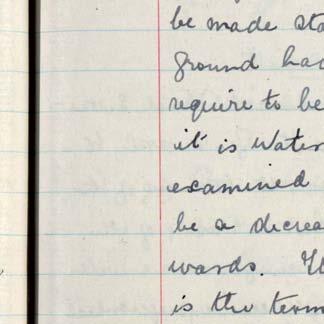 be made sta
ground had
require to be
it is Water
examined
be a decrea
wards. It
is the term